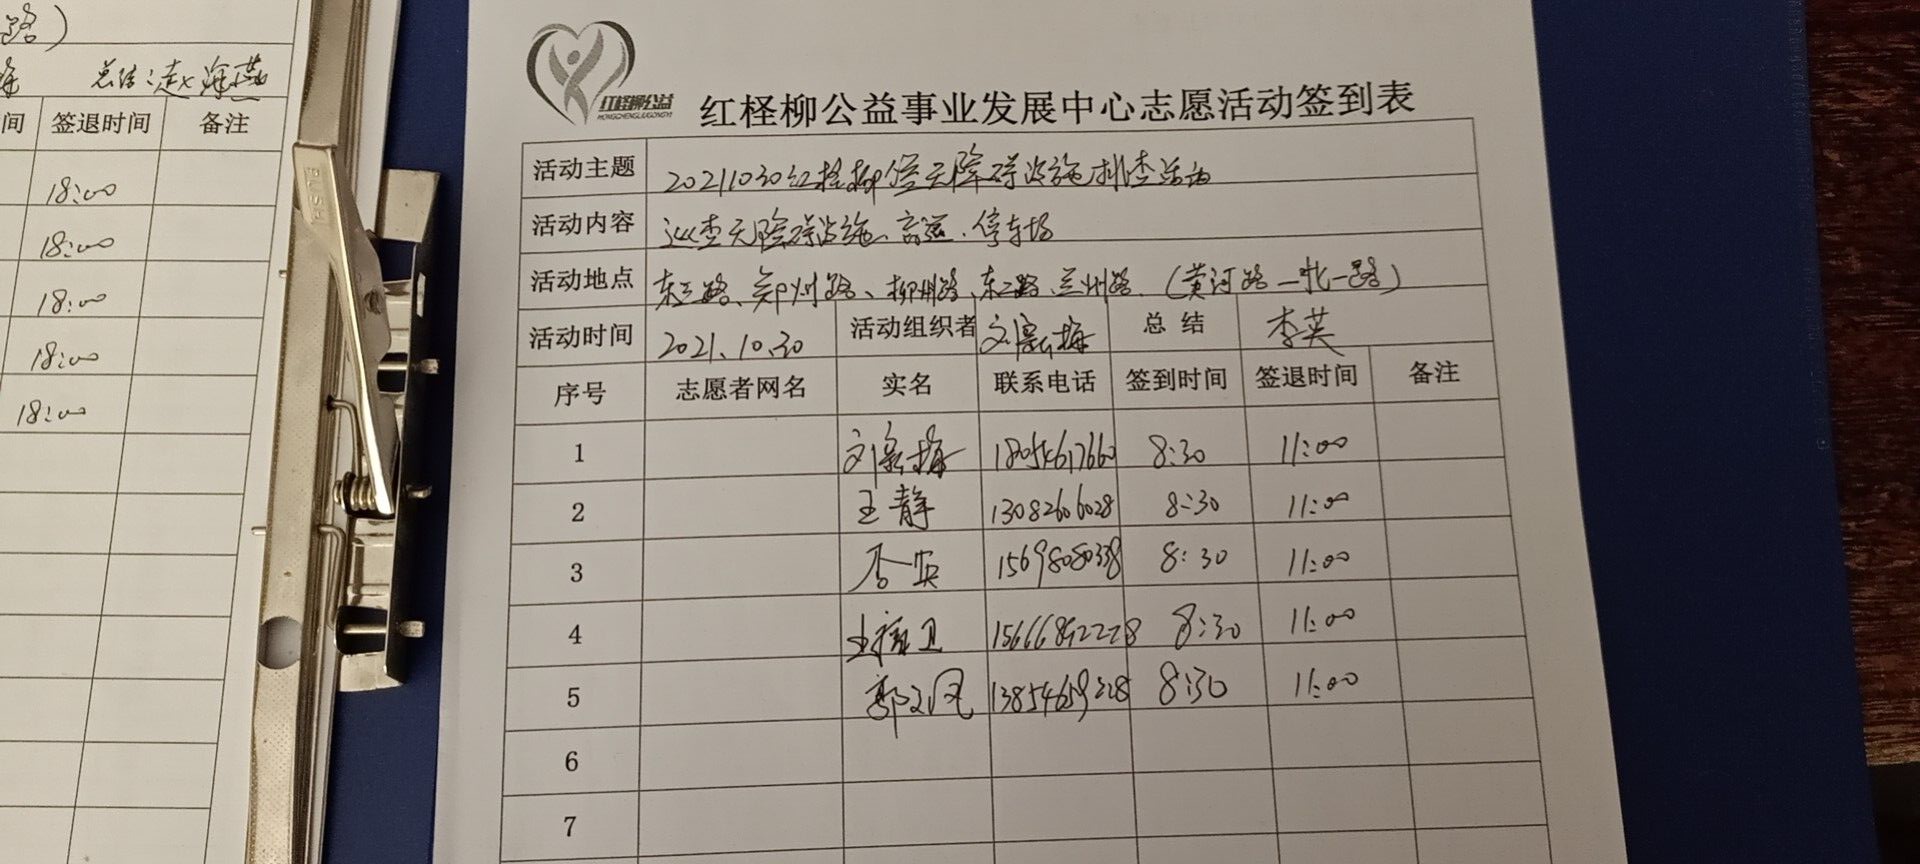 路)
总结:赵海燕
间 签退时间 备注
18:00
18:00
18:00
18:00
18:00
红柽柳公益
HONGCHENGLIUGONGYI
红柽柳公益事业发展中心志愿活动签到表
活动主题 20211030红柽柳 无障碍设施排查活动
活动内容 巡查无障碍设施、盲道、停车场
活动地点 东三路、郑州路、柳州路、东二路、兰州路(黄河路—北一路)
活动时间 2021.10.30 活动组织者 总结 李英
序号 志愿者网名 实名 联系电话 签到时间 签退时间 备注
1 18054617660 8:30 11:00
2 王静 13082606028 8:30 11:00
3 15698080338 8:30 11:00
4 8:30 11:00
5 郭文凤 13854659228 8:30 11:00
6
7